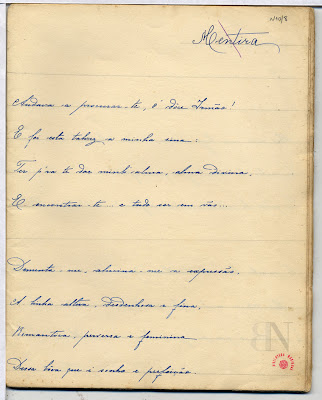 N10/8
Mentira
Andava a procurar-te, ó dôce Irmão!
E foi esta talvez, a minha sina:
Ter p'ra te dar minh'alma, alma divina,
E encontrar-te... e tudo ser em vão...
Dementa-me, alucina-me a expressão,
A linha altiva, desdenhosa e fina,
perversa e feminina
Dessa bôca que é sonho e perfeição.
BN